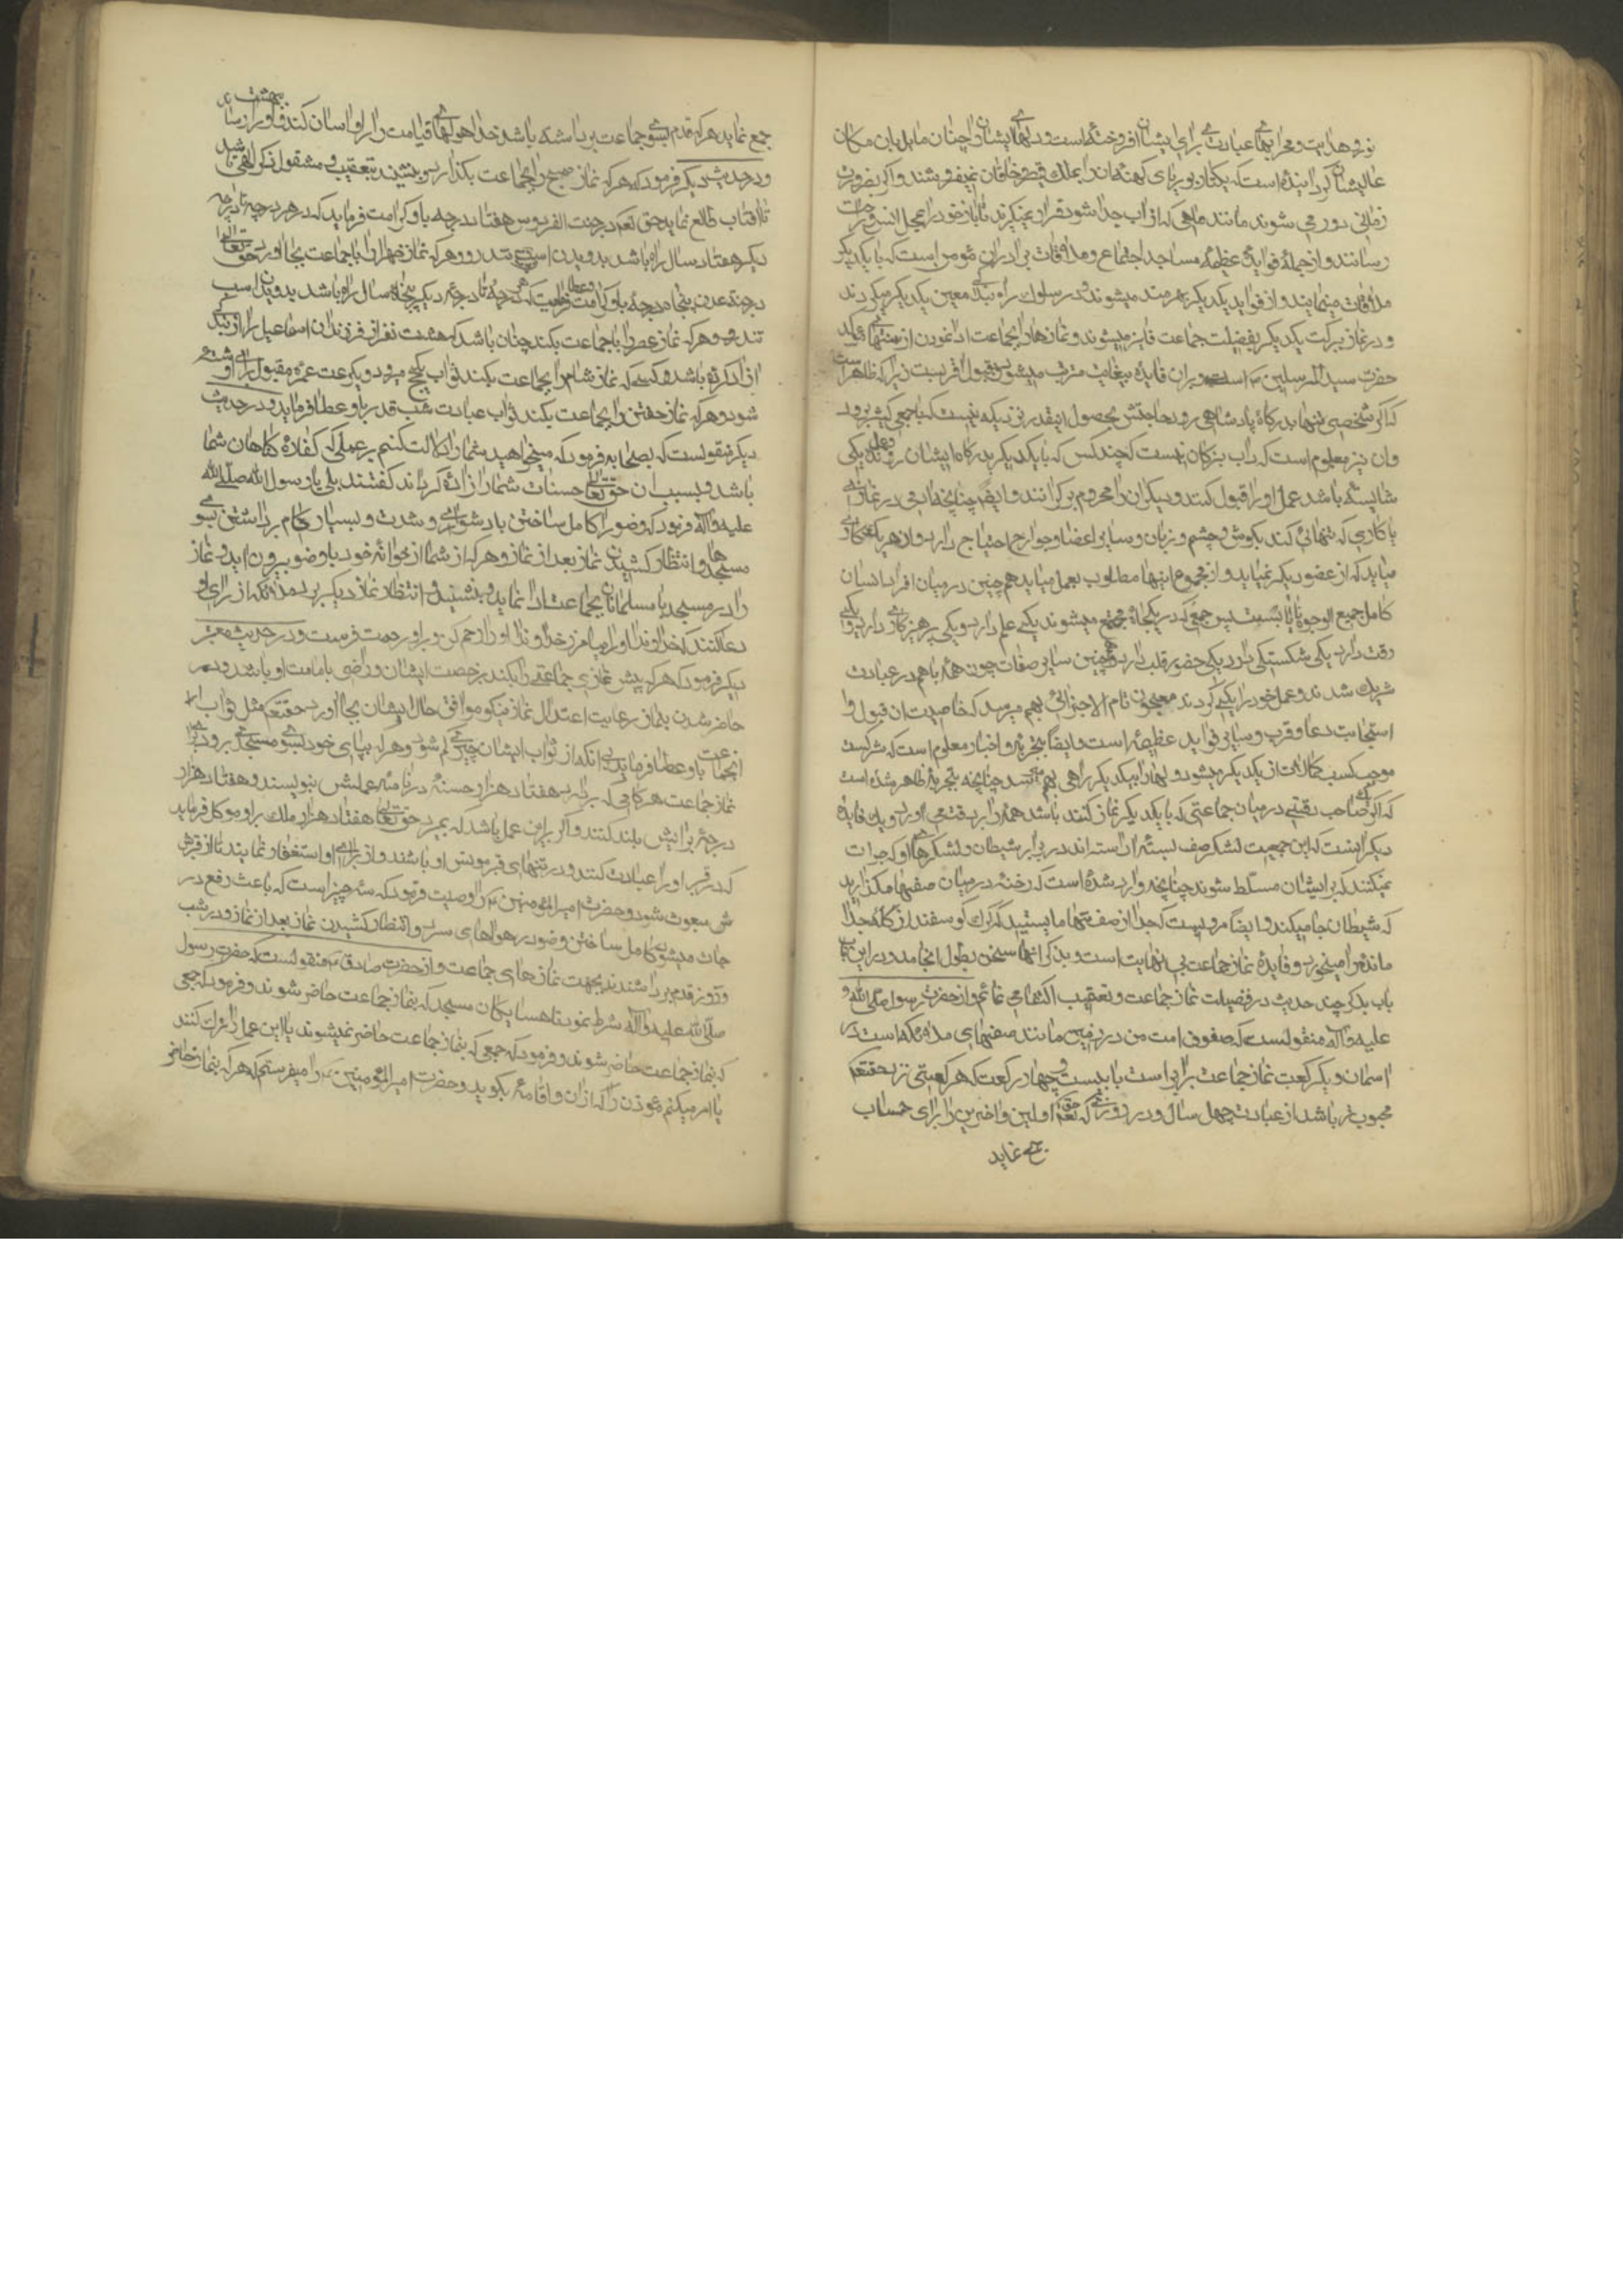 نور هدایت و محرابهای عبادت برای ایشان افروخته است و دلهای ایشان را چنان مایل بان مکان
عالیشان گردانیده است که یکتار بوریای کهنه آن را بملک قیصر و خاقان نمیفروشند و اگر بضرورت
زمانی دور می شوند مانند ماهی که از آب جدا شود قرار نمیگیرند تا باز خود را بمحل انس و
رسانند و از جمله فواید عظیمه مساجد اجتماع و ملاقات برادران مومن است که با یکدیگر
ملاقات مینمایند و از فواید یکدیگر بهره مند میشوند و در سلوک راه بندگی معین یکدیگر میگردند
و در نماز ببرکت یکدیگر بفضیلت جماعت فایز میشوند و نمازها را بجماعت ادا نمودن از سنتهای مؤکد
حضرت سید المرسلین است و بران فایده بیغایت مترتب میشود و بقبول اقربست زیرا که ظاهر است
که اگر شخصی تنها بدرگاه پادشاهی رود حاجتش بحصول انقدر نزدیک نیست که با جمعی کثیر برود
و ان نیز معلوم است که داب بزرگان نیست که چند کس که با یکدیگر بدرگاه ایشان روند و عمل یکی
شایسته باشد عمل او را قبول کنند و دیگران را محروم برگردانند و ایضا چنانچه ادمی در نمازی
یا کاری که تنهائی کند بگوش و چشم و زبان و سایر اعضا و جوارح احتیاج دارد و از هر یک کاری
میاید که از عضو دیگر نمیاید و از مجموع اینها مطلوب بعمل میاید همچنین در میان افراد انسان
کامل جمیع الوجوه نایابست پس جمعی که در یکجا مجتمع میشوند یکی علم دارد و یکی پرهیزکاری دارد و یکی
رقت دارد یکی شکستگی دارد یکی حضور قلب دارد و همچنین سایر صفات چون همه با هم در عبادت
شریک شدند و عمل خود را یکی کردند معجون تام الاجزائی بهم میرسد که خاصیت ان قبول و
استجابت دعا و قرب و سایر فواید عظیمه است و ایضا بتجربه و اخبار معلوم است که شرکت
موجب کسب کمالات از یکدیگر میشود و دلها را بیکدیگر راهی بهم میرسد چنانچه بتجربه ظاهر شده است
که اگر یک صاحب رقتی در میان جماعتی که با یکدیگر نماز کنند باشد همه را برقت می اورد و یک فایده
دیگر اینست که این جمعیت لشکر صف بسته آراسته اند در برابر شیطان و لشکرهای او که جرات
نمیکنند که بر ایشان مسلط شوند چنانچه وارد شده است که رخنه در میان صفها مگذارید
که شیطان جا میکند و ایضا مرویست که جدا از صف تنها مایستید که گرگ گوسفند از گله جدا
مانده را میخورد و فایده نماز جماعت بی نهایت است و بذکر انها سخن بطول انجامد و در این
باب بذکر چند حدیث در فضیلت نماز جماعت و تعقیب اکتفا می نمائم و از حضرت رسول صلی الله
علیه و آله منقولست که صفوف امت من در زمین مانند صفهای ملائکه است در
اسمان و یکرکعت نماز جماعت برابر است با بیست و چهار رکعت که هر رکعتی نزد حقتعم
محبوب تر باشد از عبادت چهل سال و در روزی که حق تعم اولین و آخرین را برای حساب
جمع نماید
جمع نماید هر که قدم بسوی جماعت برداشته باشد خدا هولهای قیامت را بر او اسان کند و او را ببهشت رساند
و در حدیث دیگر فرمود که هر که نماز صبح را بجماعت بگذارد و بنشیند بتعقیب و مشقول ذکر الهی باشد
تا آفتاب طالع نماید حق تعم در جنت الفردوس هفتاد درجه باو کرامت فرماید که از هر درجه تا درجه
دیگر هفتاد سال راه باشد بدویدن اسب تندرو و هر که نماز ظهر را با جماعت بجا اورد حق تعالی
در جنت عدن پنجاه درجه باو کرامت و عطا فرماید که از هر درجه تا درجه دیگر پنجاه سال راه باشد بدویدن اسب
تندرو و هر که نماز عصر را با جماعت بکند چنان باشد که هشت نفر از فرزندان اسماعیل را از بندگی
آزاد کرده باشد و کسی که نماز شام را بجماعت بکند ثواب یکحج مبرور و یک عمره مقبول برای او نوشته
شود و هر که نماز خفتن را بجماعت بکند ثواب عبادت شب قدر باو عطا فرماید و در حدیث
دیگر منقولست که بصحابه فرمود که میخواهید شما را دلالت کنم بر عملی که کفاره گناهان شما
باشد و بسبب ان حق تعالی حسنات شما را زیاده گرداند گفتند بلی یا رسول الله صلی الله
علیه و آله فرمود که وضو را کامل ساختن با دشواری و شدت و بسیار گام برداشتن بسوی
مسجدها و انتظار کشیدن نماز بعد از نماز و هر که از شما از خانه خود با وضو بیرون اید و نماز
را در مسجد با مسلمانان بجماعت ادا نماید و بنشیند و انتظار نماز دیگر برد ملائکه از برای او
دعا کنند که خداوندا او را بیامرز خداوندا او را رحم کن و بر او رحمت فرست و در حدیث معتبر
دیگر فرمود که هر که پیش نمازی جماعتی را بکند برخصت ایشان و راضی بامامت او باشند و در
حاضر شدن بنماز رعایت اعتدال نماز نیکو موافق حال ایشان بجا اورد حقتعم مثل ثواب
انجماعت باو عطا فرماید بی انکه از ثواب ایشان چیزی کم شود و هر که بپای خود بسوی مسجدی برود برای
نماز جماعت هر گامی که بردارد هفتاد هزار حسنه در نامه عملش بنویسند و هفتاد هزار
درجه برایش بلند کنند و اگر بر این عمل باشد که بمیرد حق تعالی هفتاد هزار ملک بر او موکل فرماید
که در قبر او را عبادت کنند و در تنهای قبر مونس او باشند و از برای او استغفار نمایند تا از قبرش
مبعوث شود و حضرت امیر المؤمنین را وصیت فرمود که سه چیز است که باعث رفع در
جات میشود کامل ساختن وضو در هواهای سرد و انتظار کشیدن نماز بعد از نماز و در شب
و روز قدم برداشتند بجهت نمازهای جماعت و از حضرت صادق منقولست که حضرت رسول
صلی الله علیه و آله شرط نمود با همسایگان مسجد که بنماز جماعت حاضر شوند و فرمود که جمعی
که بنماز جماعت حاضر شوند و فرمود که جمعی که بنماز جماعت حاضر نمیشوند یا این عمل را ترک کنند
یا امر میکنم مؤذن را که اذان و اقامه بگوید و حضرت امیر المؤمنین را میفرستم که هر که بنماز حاضر